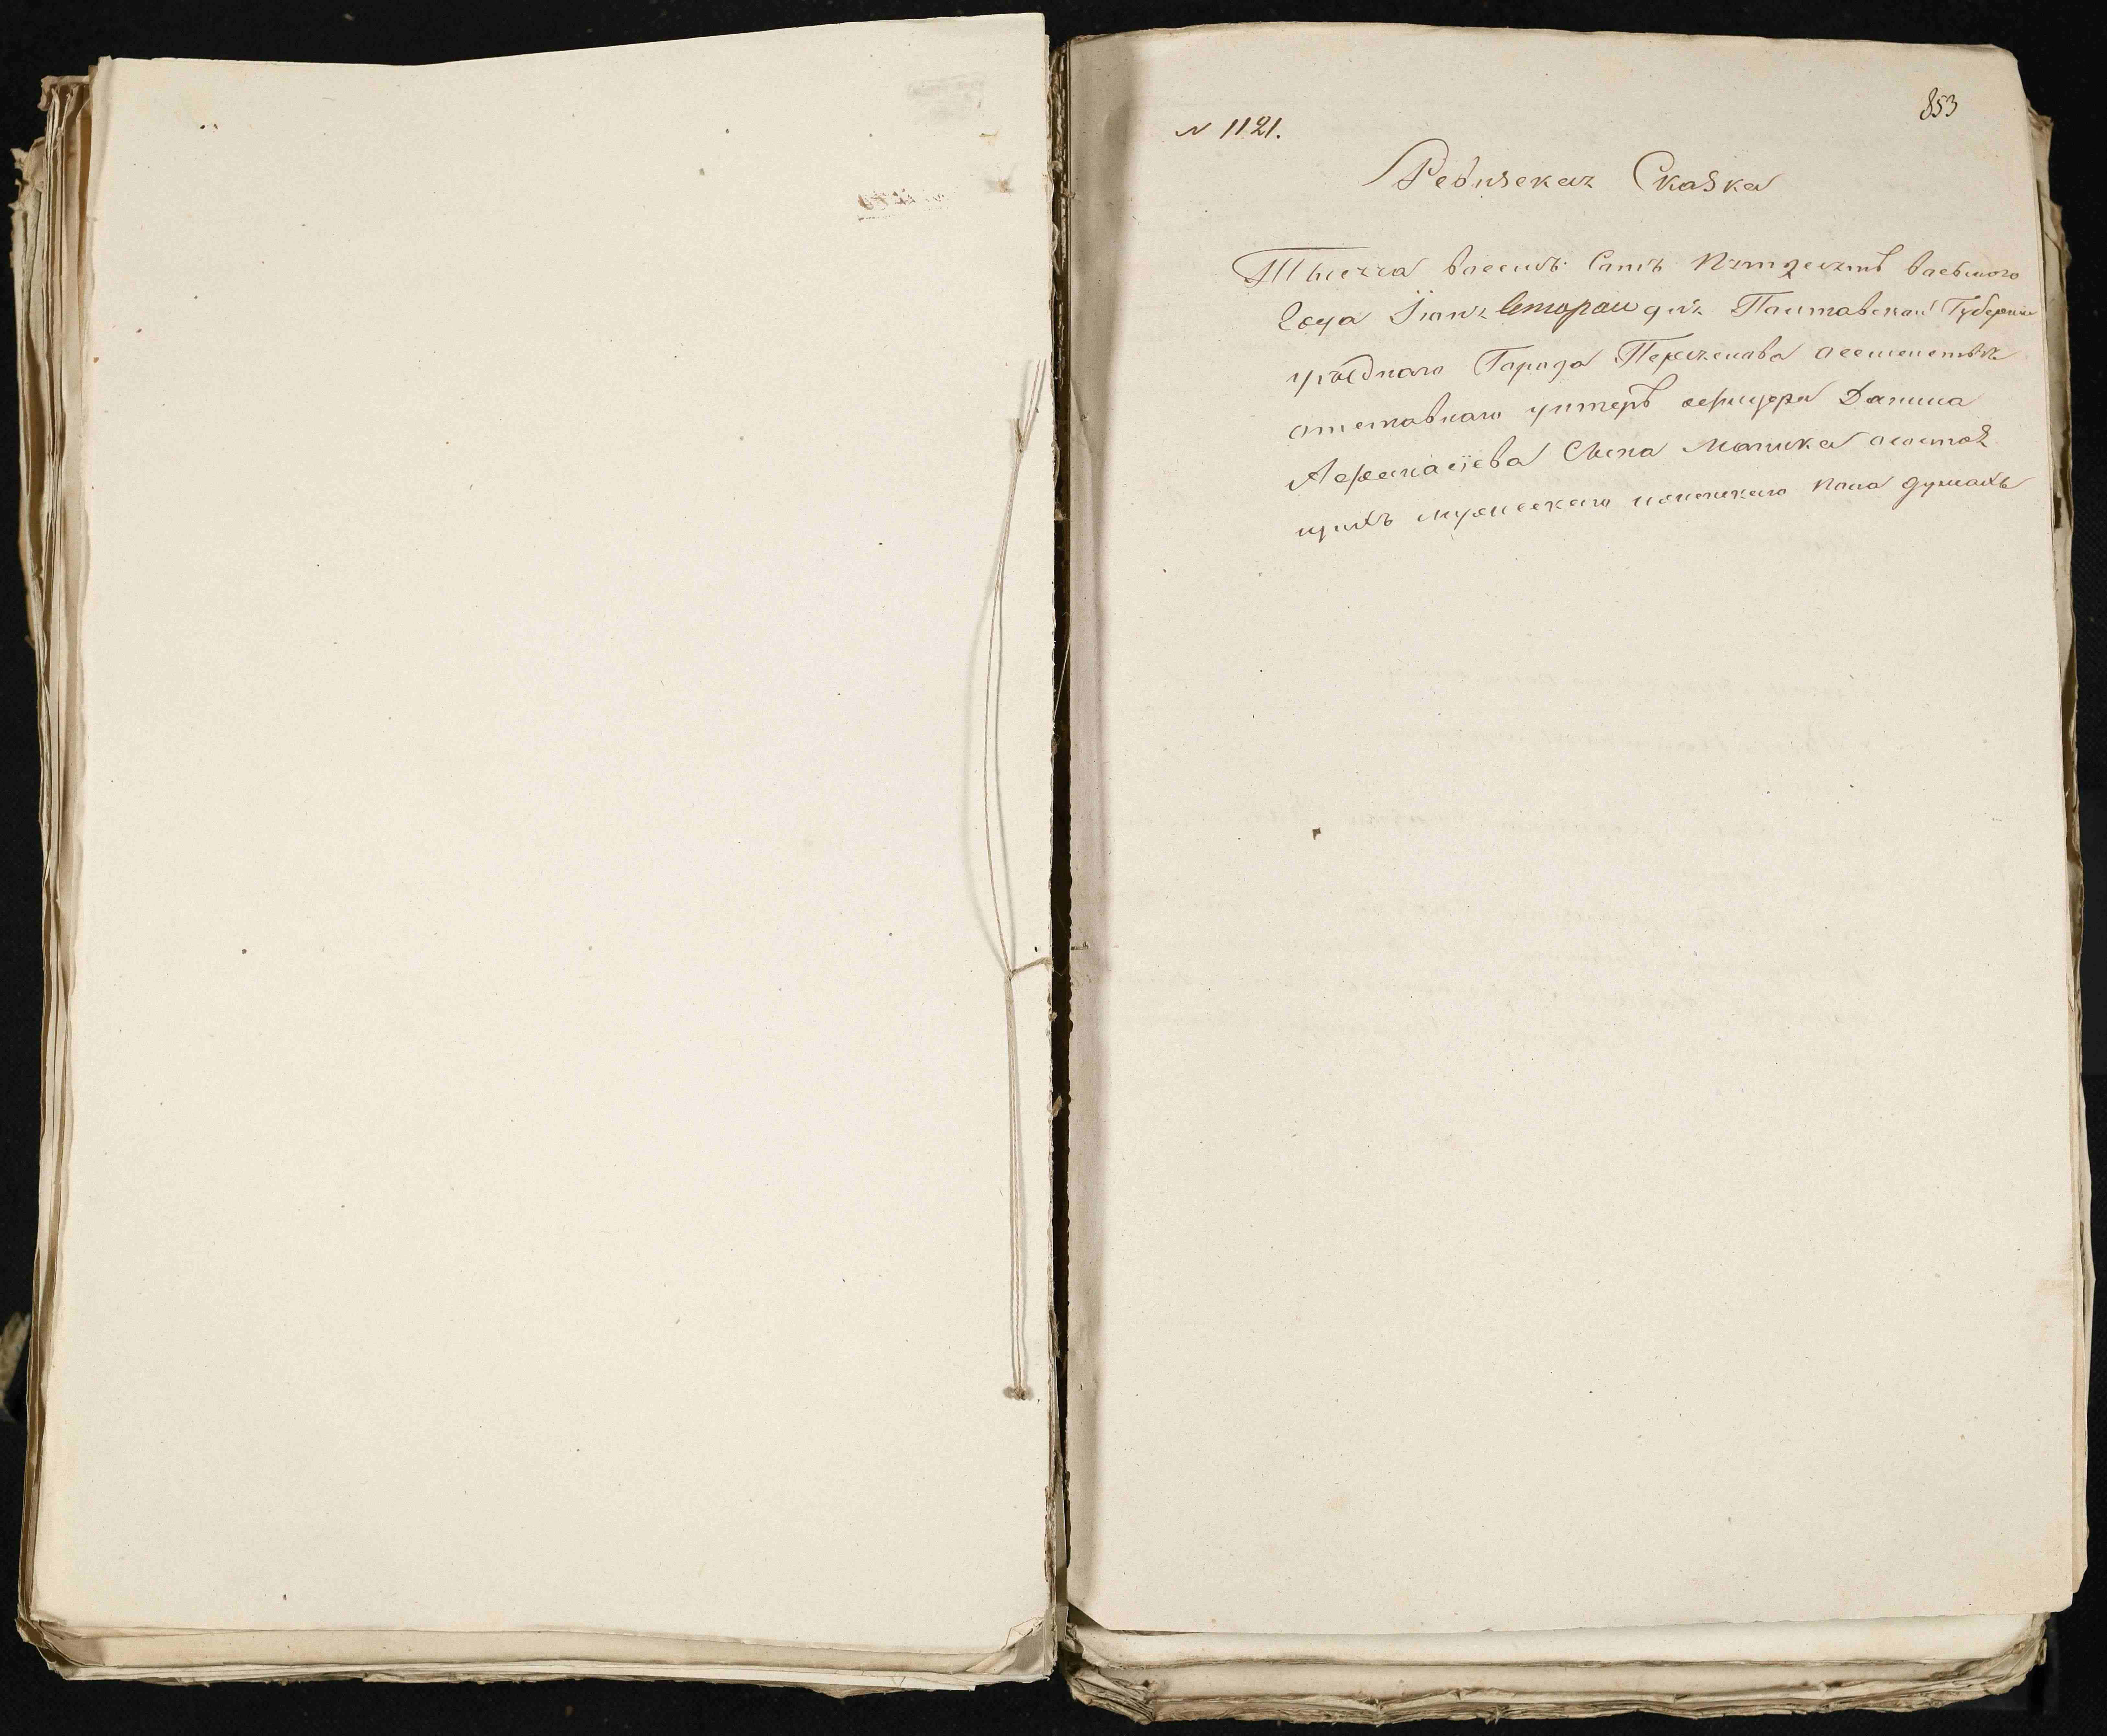 853
№ 1121.
Ревизская Сказка
Тысяча восемь Сотъ Пятдесятъ восьмого
Года Iюня второго дня Полтавской Губернiи
уѣзднаго Города Переяслова о семействѣ
отставнаго унтеръ офицера Данила
Афанасiева Сына состоя
щихъ мужескаго и женскаго пола душахъ